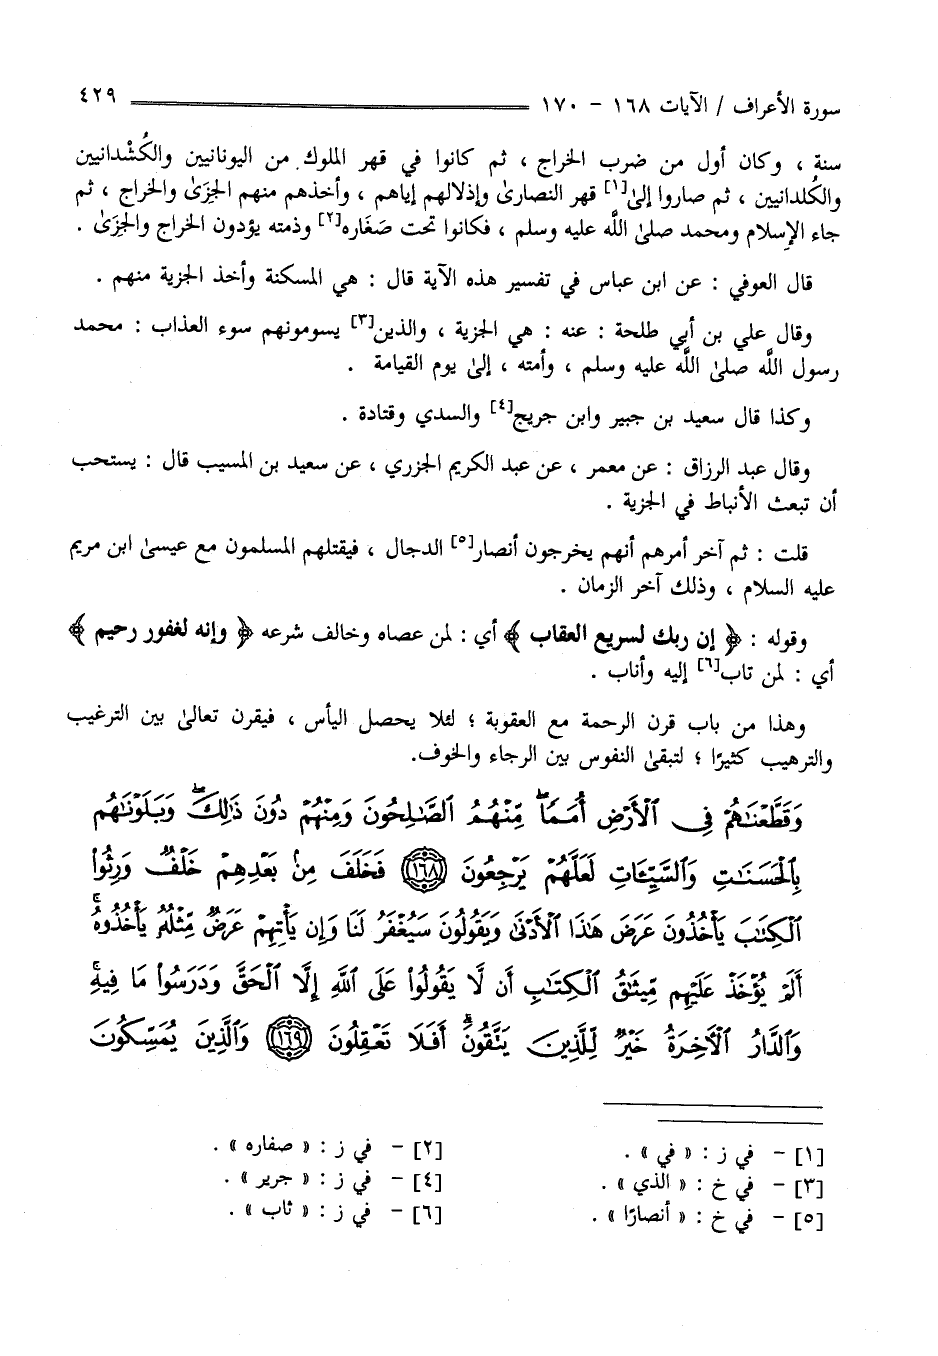 سورة الأعراف / الآيات ١٦٨ - ١٧٠ ٤٢٩
سنة ، وكان أول من ضرب الخراج ، ثم كانوا في قهر الملوك من اليونانيين والكُشْدانيين
والكُلدانيين ، ثم صاروا إلىٰ[١] قهر النصارىٰ وإذلالهم إياهم ، وأخذهم منهم الجزَىٰ والخراج ، ثم
جاء الإسلام ومحمد صلىٰ اللَّه عليه وسلم ، فكانوا تحت صَغَاره[٢] وذمته يؤدون الخراج والجزَىٰ .
قال العوفي : عن ابن عباس في تفسير هذه الآية قال : هي المسكنة وأخذ الجزية منهم .
وقال علي بن أبي طلحة : عنه : هي الجزية ، والذين[٣] يسومونهم سوء العذاب : محمد
رسول اللَّه صلىٰ اللَّه عليه وسلم ، وأمته ، إلىٰ يوم القيامة .
وكذا قال سعيد بن جبير وابن جريج[٤] والسدي وقتادة .
وقال عبد الرزاق : عن معمر ، عن عبد الكريم الجزري ، عن سعيد بن المسيب قال : يستحب
أن تبعث الأنباط في الجزية .
قلت : ثم آخر أمرهم أنهم يخرجون أنصار[٥] الدجال ، فيقتلهم المسلمون مع عيسىٰ ابن مريم
عليه السلام ، وذلك آخر الزمان .
وقوله : ﴿ إن ربك لسريع العقاب ﴾ أي : لمن عصاه وخالف شرعه ﴿ وإنه لغفور رحيم ﴾
أي : لمن تاب[٦] إليه وأناب .
وهذا من باب قرن الرحمة مع العقوبة ؛ لئلا يحصل اليأس ، فيقرن تعالىٰ بين الترغيب
والترهيب كثيرًا ؛ لتبقىٰ النفوس بين الرجاء والخوف.
وَقَطَّعْنَٰهُمْ فِى ٱلْأَرْضِ أُمَمًاۖ مِّنْهُمُ ٱلصَّٰلِحُونَ وَمِنْهُمْ دُونَ ذَٰلِكَۖ وَبَلَوْنَٰهُم
بِٱلْحَسَنَٰتِ وَٱلسَّيِّـَٔاتِ لَعَلَّهُمْ يَرْجِعُونَ ١٦٨ فَخَلَفَ مِنۢ بَعْدِهِمْ خَلْفٌ وَرِثُوا۟
ٱلْكِتَٰبَ يَأْخُذُونَ عَرَضَ هَٰذَا ٱلْأَدْنَىٰ وَيَقُولُونَ سَيُغْفَرُ لَنَا وَإِن يَأْتِهِمْ عَرَضٌ مِّثْلُهُۥ يَأْخُذُوهُۚ
أَلَمْ يُؤْخَذْ عَلَيْهِم مِّيثَٰقُ ٱلْكِتَٰبِ أَن لَّا يَقُولُوا۟ عَلَى ٱللَّهِ إِلَّا ٱلْحَقَّ وَدَرَسُوا۟ مَا فِيهِۚ
وَٱلدَّارُ ٱلْأَخِرَةُ خَيْرٌ لِّلَّذِينَ يَتَّقُونَۗ أَفَلَا تَعْقِلُونَ ١٦٩ وَٱلَّذِينَ يُمَسِّكُونَ
[١] - في ز : « في » . [٢] - في ز : « صفاره » .
[٣] - في خ : « الذي » . [٤] - في ز : « جرير » .
[٥] - في خ : « أنصارًا » . [٦] - في ز : « ثاب » .